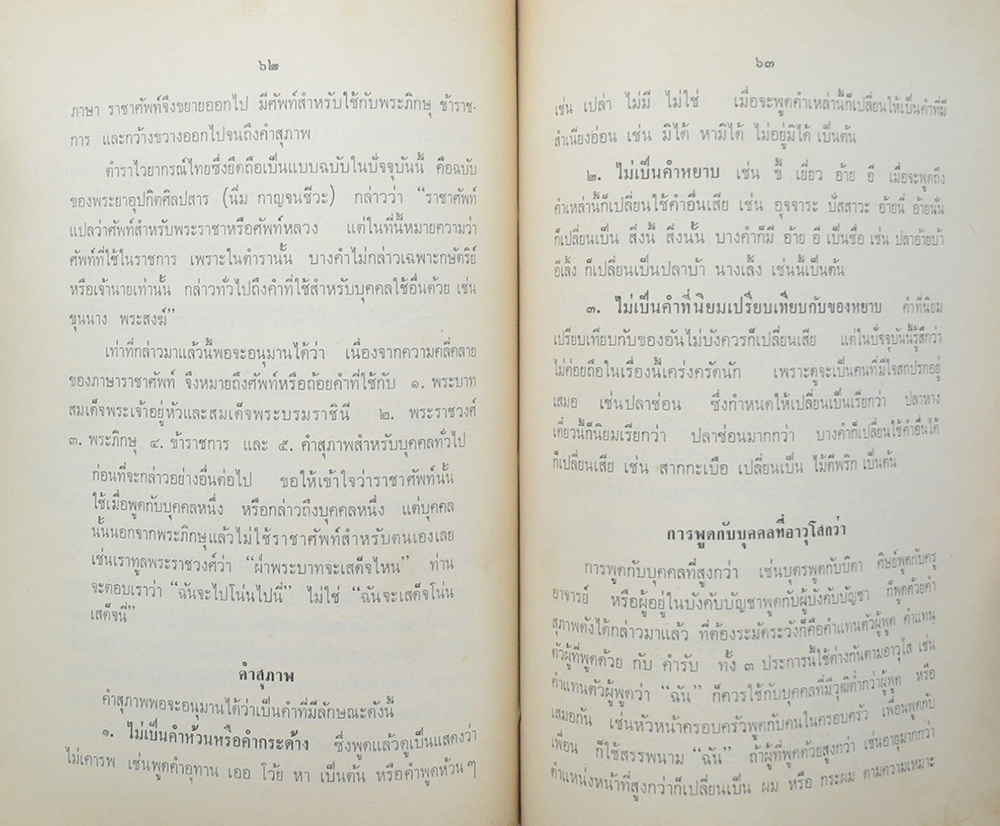 ๖๒
ภาษา ราชาศัพท์จึงขยายออกไป มีศัพท์สำหรับใช้กับพระภิกษุ ข้าราช-
การ และกว้างขวางออกไปจนถึงคำสุภาพ
ตำราไวยากรณ์ไทยซึ่งยึดถือเป็นแบบฉบับในปัจจุบันนี้ คือฉบับ
ของพระยาอุปกิตศิลปสาร (นิ่ม กาญจนชีวะ) กล่าวว่า “ราชาศัพท์
แปลว่าศัพท์สำหรับพระราชาหรือศัพท์หลวง แต่ในที่นี้หมายความว่า
ศัพท์ที่ใช้ในราชการ เพราะในตำรานั้น บางคำไม่กล่าวเฉพาะกษัตริย์
หรือเจ้านายเท่านั้น กล่าวทั่วไปถึงคำที่ใช้สำหรับบุคคลใช้อื่นด้วย เช่น
ขุนนาง พระสงฆ์”
เท่าที่กล่าวมาแล้วนี้พอจะอนุมานได้ว่า เนื่องจากความคลี่คลาย
ของภาษาราชาศัพท์ จึงหมายถึงศัพท์หรือถ้อยคำที่ใช้กับ ๑. พระบาท
สมเด็จพระเจ้าอยู่หัวและสมเด็จพระบรมราชินี ๒. พระราชวงศ์
๓. พระภิกษุ ๔. ข้าราชการ และ ๕. คำสุภาพสำหรับบุคคลทั่วไป
ก่อนที่จะกล่าวอย่างอื่นต่อไป ขอให้เข้าใจว่าราชาศัพท์นั้น
ใช้เมื่อพูดกับบุคคลหนึ่ง หรือกล่าวถึงบุคคลหนึ่ง แต่บุคคล
นั้นนอกจากพระภิกษุแล้วไม่ใช้ราชาศัพท์สำหรับตนเองเลย
เช่นเราทูลพระราชวงศ์ว่า “ฝ่าพระบาทจะเสด็จไหน” ท่าน
จะตอบเราว่า “ฉันจะไปโน่นไปนี่” ไม่ใช่ “ฉันจะเสด็จโน่น
เสด็จนี่”
คำสุภาพ
คำสุภาพพอจะอนุมานได้ว่าเป็นคำที่มีลักษณะดังนี้
๑. ไม่เป็นคำห้วนหรือคำกระด้าง ซึ่งพูดแล้วดูเป็นแสดงว่า
ไม่เคารพ เช่นพูดคำอุทาน เออ โว้ย หา เป็นต้น หรือคำพูดห้วนๆ
๖๓
เช่น เปล่า ไม่มี ไม่ใช่ เมื่อจะพูดคำเหล่านี้ก็เปลี่ยนให้เป็นคำที่มี
สำเนียงอ่อน เช่น มิได้ หามิได้ ไม่อยู่มิได้ เป็นต้น
๒. ไม่เป็นคำหยาบ เช่น ขี้ เยี่ยว อ้าย อี เมื่อจะพูดถึง
คำเหล่านี้ก็เปลี่ยนใช้คำอื่นเสีย เช่น อุจจาระ ปัสสาวะ อ้ายนี่ อ้ายนั่น
ก็เปลี่ยนเป็น สิ่งนี้ สิ่งนั้น บางคำก็มี อ้าย อี เป็นชื่อ เช่น ปลาอ้ายบ้า
อีเล้ง ก็เปลี่ยนเป็นปลาบ้า นางเล้ง เช่นนี้เป็นต้น
๓. ไม่เป็นคำที่นิยมเปรียบเทียบกับของหยาบ คำที่นิยม
เปรียบเทียบกับของอันไม่บังควรก็เปลี่ยนเสีย แต่ในปัจจุบันนี้รู้สึกว่า
ไม่ค่อยถือในเรื่องนี้เคร่งครัดนัก เพราะดูจะเป็นคนที่มีใจสกปรกอยู่
เสมอ เช่นปลาช่อน ซึ่งกำหนดให้เปลี่ยนเป็นเรียกว่า ปลาหาง
เดี๋ยวนี้ก็นิยมเรียกว่า ปลาช่อนมากกว่า บางคำก็เปลี่ยนใช้คำอื่นได้
ก็เปลี่ยนเสีย เช่น สากกะเบือ เปลี่ยนเป็น ไม้ตีพริก เป็นต้น
การพูดกับบุคคลที่อาวุโสกว่า
การพูดกับบุคคลที่สูงกว่า เช่นบุตรพูดกับบิดา ศิษย์พูดกับครู
อาจารย์ หรือผู้อยู่ในบังคับบัญชาพูดกับผู้บังคับบัญชา ก็พูดด้วยคำ
สุภาพดังได้กล่าวมาแล้ว ที่ต้องระมัดระวังก็คือคำแทนตัวผู้พูด คำแทน
ตัวผู้ที่พูดด้วย กับ คำรับ ทั้ง ๓ ประการนี้ใช้ต่างกันตามอาวุโส เช่น
คำแทนตัวผู้พูดว่า “ฉัน” ก็ควรใช้กับบุคคลที่มีวุฒิต่ำกว่าผู้พูด หรือ
เสมอกัน เช่นหัวหน้าครอบครัวพูดกับคนในครอบครัว เพื่อนพูดกับ
เพื่อน ก็ใช้สรรพนาม “ฉัน” ถ้าผู้ที่พูดด้วยสูงกว่า เช่นอายุมากกว่า
ตำแหน่งหน้าที่สูงกว่าก็เปลี่ยนเป็น ผม หรือ กระผม ตามความเหมาะ